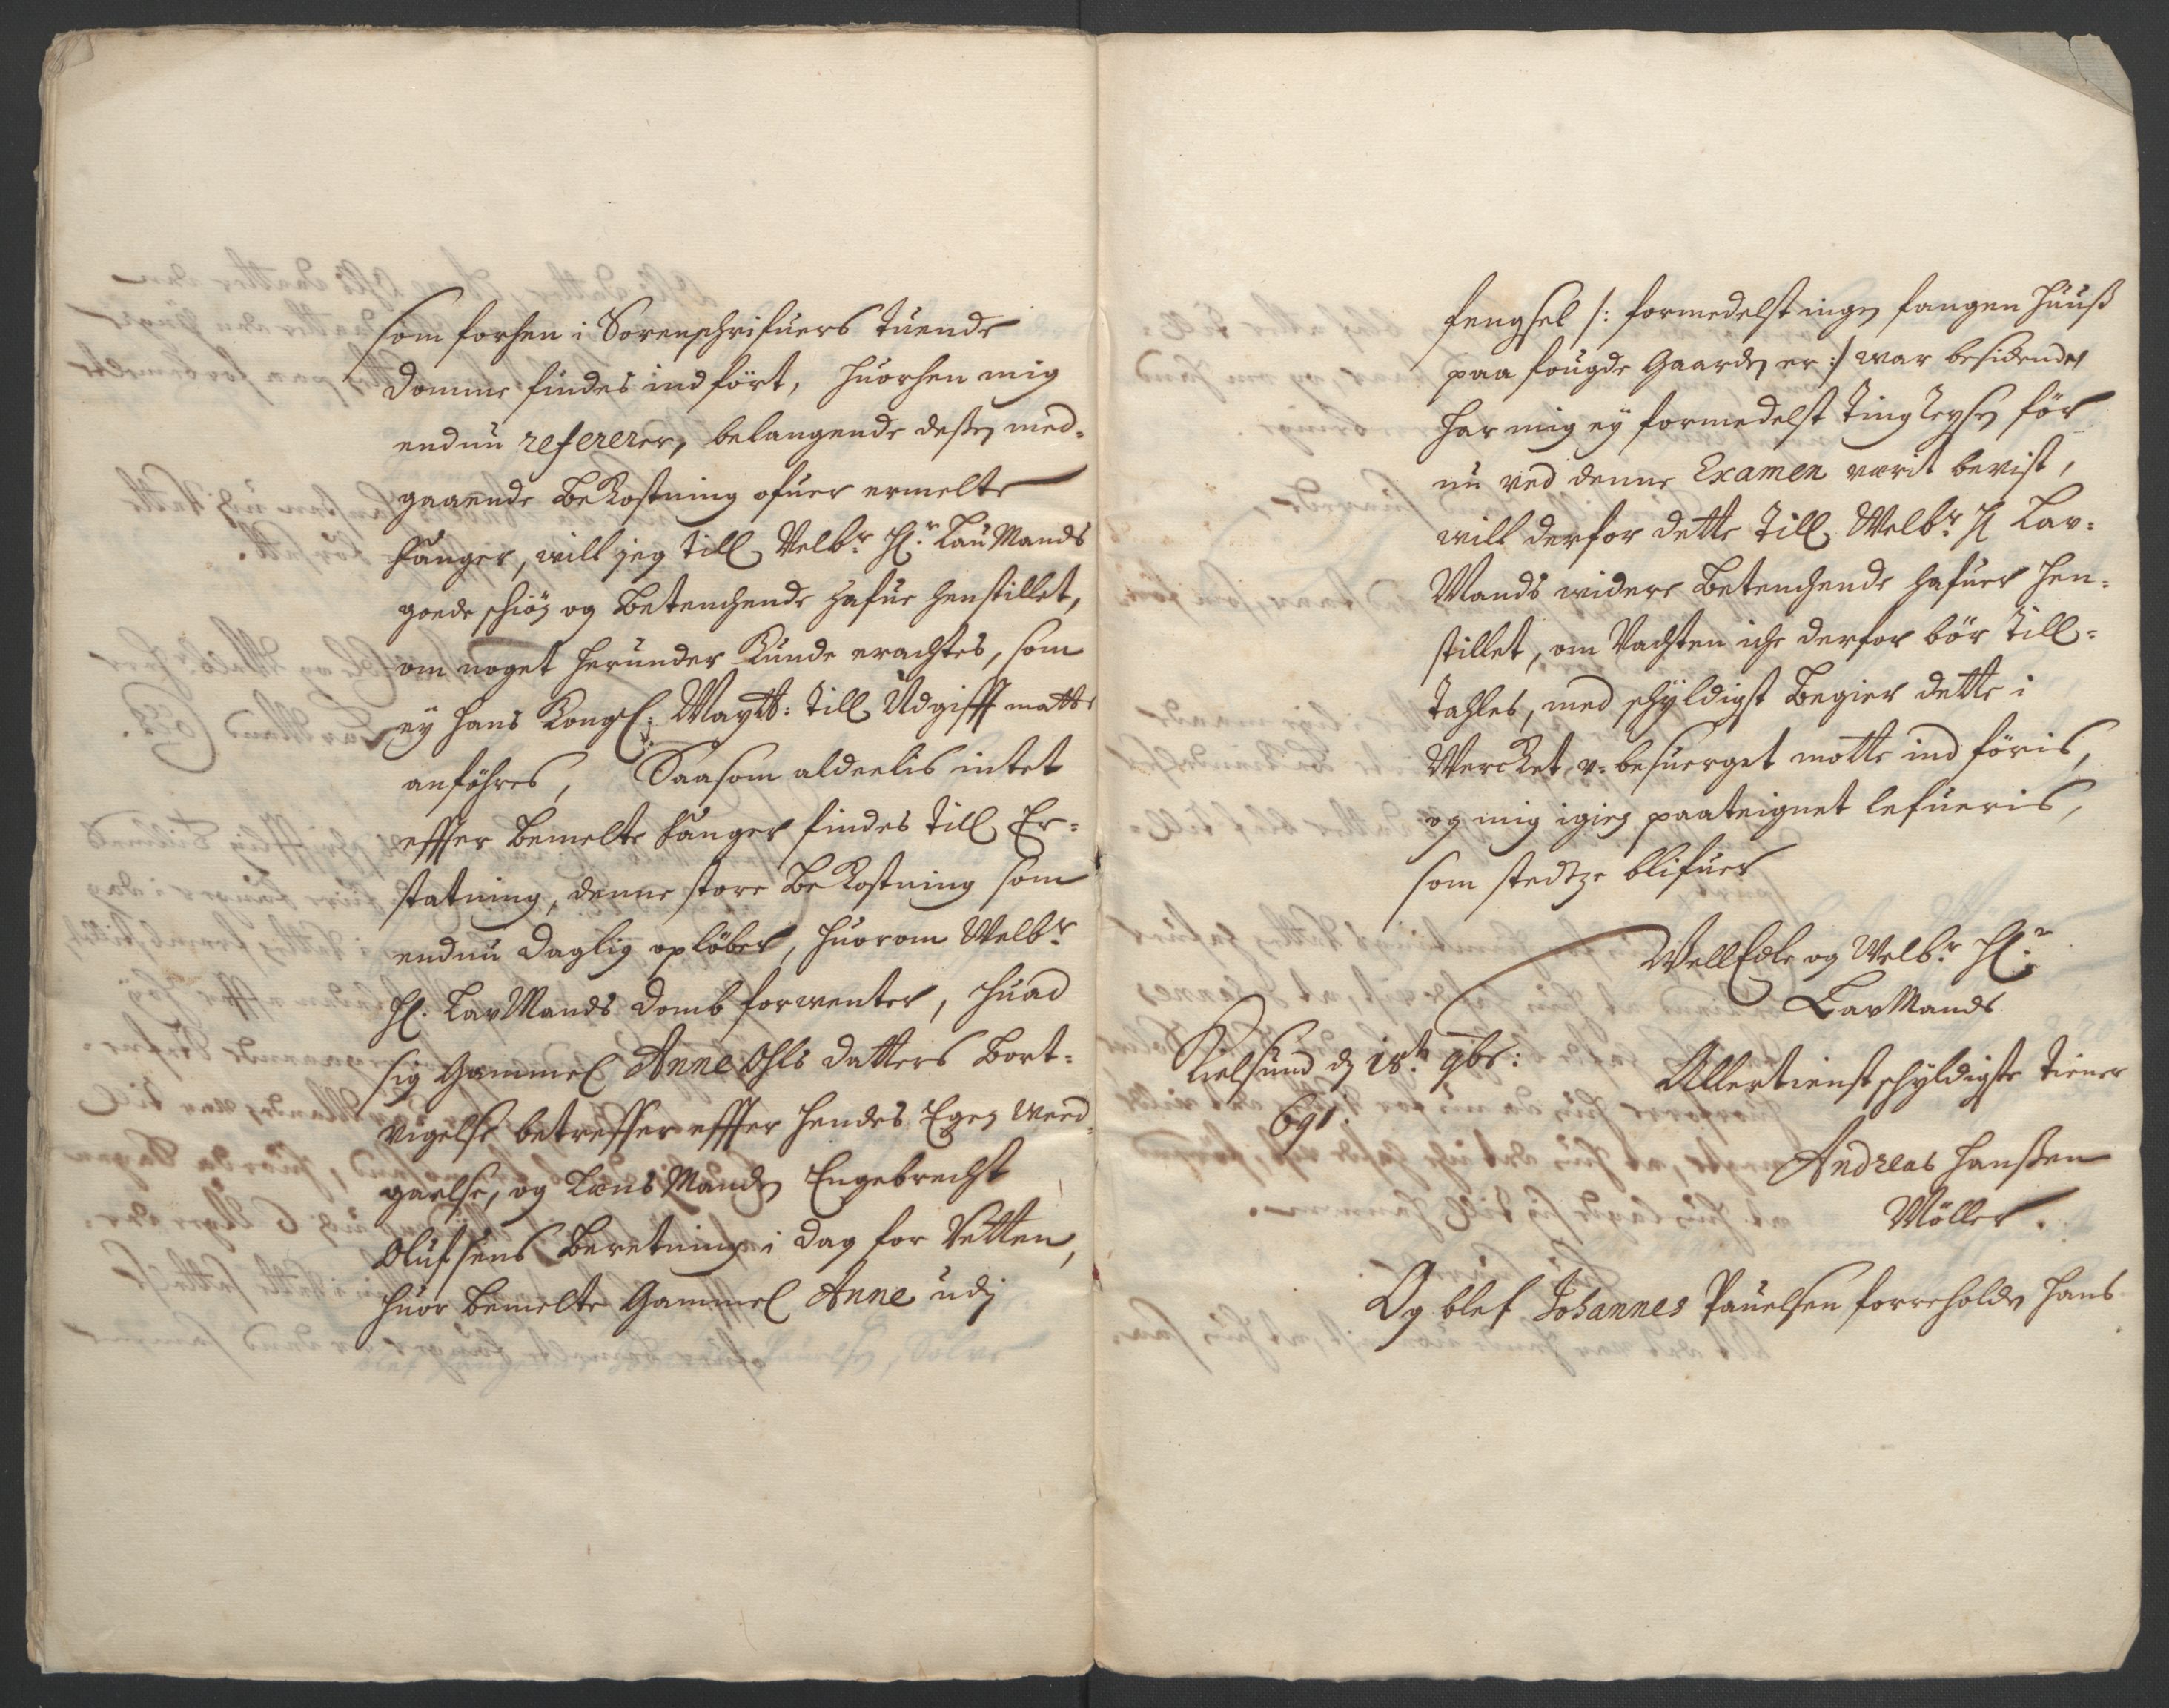 som forhen i Sorenschrifuers tuende
domme findes indført, huorhen mig
endnu refererer, belangende desen med-
gaaende bekostning ofuer ermelte
fanger, will jeg till Velb.r H.r LauMands
goede schiøn og betenchende hafue henstillet,
om noget herunder kunde erachtes, som
ey Hans Kongl: Maytt: till Udgifft motte
anføhres, Saasom aldeelis intet
effter bemelte fanger findes till Er-
statning, denne store bekostning som
endnu daglig opløber, huorom Welb.r
H. LavMands domb forwenter, huad
sig Gammel Anne Ohls datters bort-
vigelse betreffer effter hendes Egen Weed-
gaelse, og LænsManden Engebrecht
Olufsens beretning i dag for Retten,
huor bemelte Gammel Anne udj
fengsel /: formedelst ingen fangen huuß
paa fougde Gaarden er :/ war besidendes
har mig ey formedelst Ting Reysen før
nu ved denne Examen verit bevist,
will derfor dette till Welb.r H Lav-
Mands widere betenchende hafuer hen-
stillet, om Vachten iche derfor bør till-
tahles, med schyldigst begier dette i
Wercket v-besuerget motte indføris,
og mig igien paateignet lefueris,
som stedtze blifuer
WellEdle og Welb.r H.r
LavMands
Kielsund d 18.t 9br:
691:
Allertienstschyldigste tiener
Andreas Hanßen
Møller.
Og blef Johannes Pauelsen forreholden hans